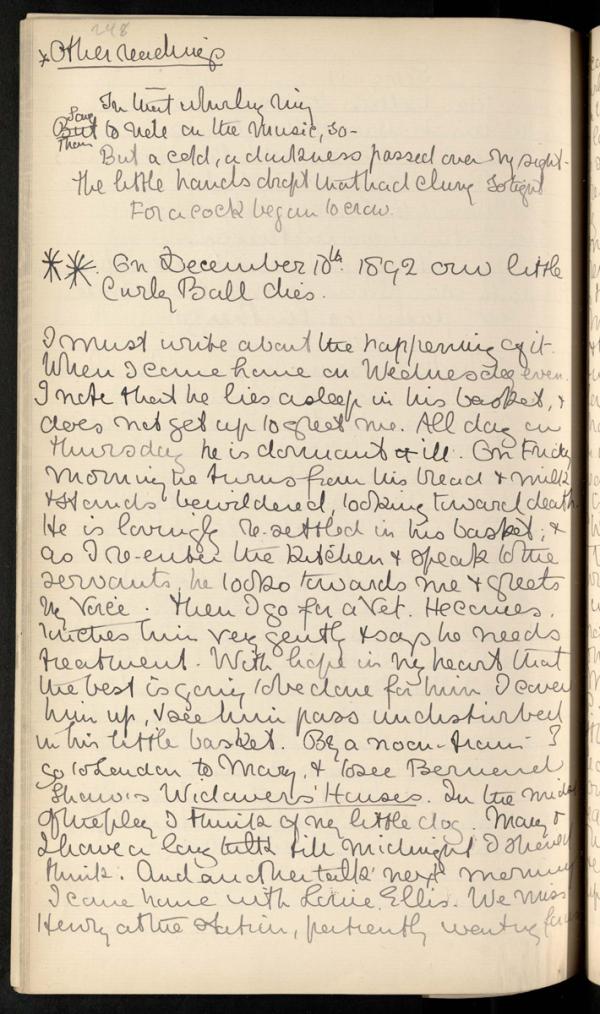 248
* Other readings
In that whirling ring
Save
But to note on the music, so -
Than
But a cold, a darkness passed over my sight -
The little hands dropt that had clung so tight
For a cock began to crow.
** On December 10th. 1892 our little
Curly Ball dies.
I must write about the happening of it.
When I came home on Wednesday even.
I note that he lies asleep in his basket, &
does not get up to greet me. All day on
Thursday he is dormant & ill. On Friday
morning he turns from his bread & milk
& stands bewildered, looking toward death.
He is lovingly re-settled in his basket; &
as I re-enter the kitchen & speak to the
servants, he looks towards me & greets
my voice. Then I go for a Vet. He comes,
touches him very gently & says he needs
treatment. With hope in my heart that
the best is going to be done for him I cover
him up, & see him pass undisturbed
in his little basket. By a noon-train I
go to London to Mary, & to see Bernard
Shaw's Widowers' Houses. In the midst
of the play I think of my little dog. Mary &
I have a long talk till midnight I should
think. And another talk next morning
I come home with Louie Ellis. We miss
Henry at the station, patiently waiting for us